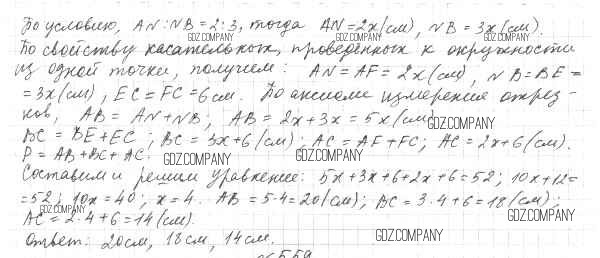 По условию, AN:NB=2:3, тогда AN=2x(см), NB=3x(см).
GDZ.COMPANY GDZ.COMPANY
По свойству касательных, проведённых к окружности
из одной точки, получем: AN=AF=2x(см), NB=BE=
=3x(см), EC=FC=6см. По аксиоме измерения отрез-
ков, AB=AN+NB; AB=2x+3x=5x(см)
GDZ.COMPANY
BC=BE+EC; BC=3x+6(см); AC=AF+FC; AC=2x+6(см).
P=AB+BC+AC.
GDZ.COMPANY GDZ.COMPANY
Составим и решим уравнение: 5x+3x+6+2x+6=52; 10x+12=
=52; 10x=40; x=4. AB=5·4=20(см); BC=3·4+6=18(см);
GDZ.COMPANY GDZ.COMPANY
AC=2·4+6=14(см).
Ответ: 20см, 18см, 14см.
GDZ.COMPANY